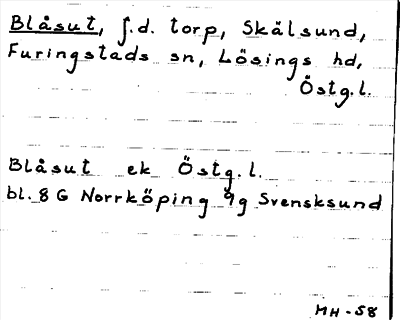 Blåsut, f.d. torp, Skälsund,
Furingstads sn, Lösings hd,
Östg.l.
Blåsut ek Östg.l.
bl. 8 G Norrköping 9g Svensksund
MH-58